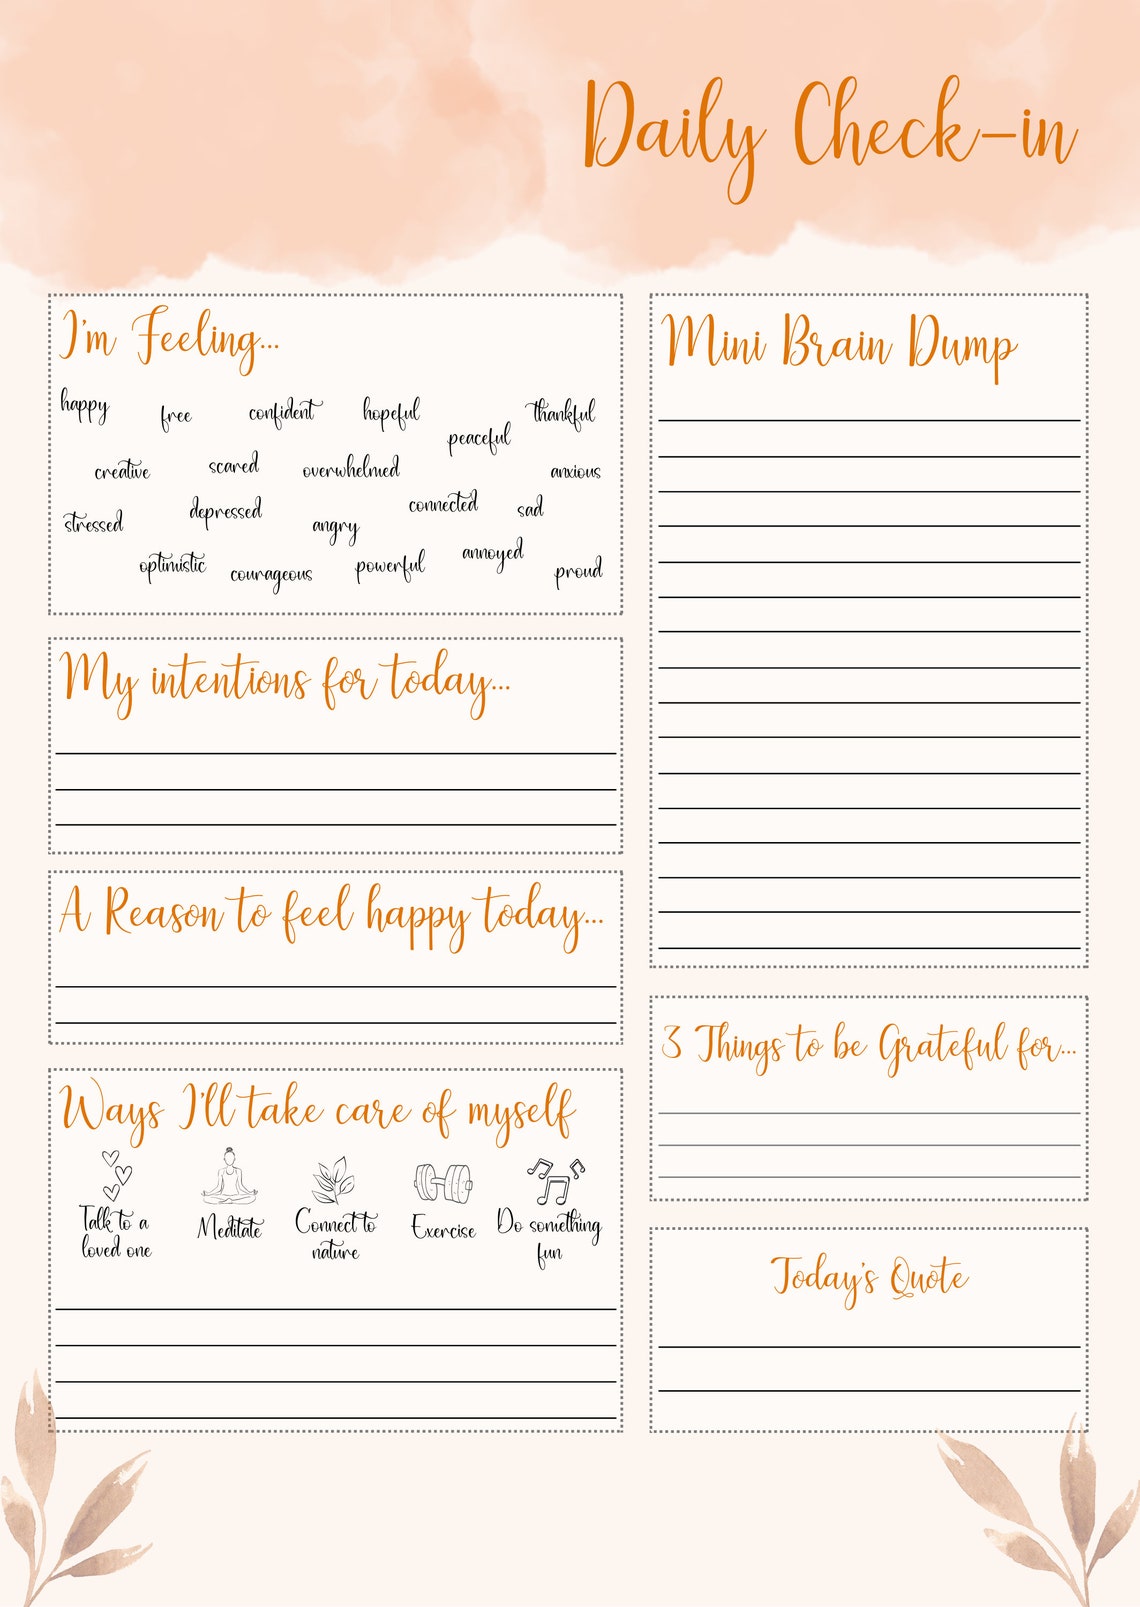 Daily Check-in
I'm Feeling...
happy free confident hopeful thankful
peaceful
creative scared overwhelmed anxious
stressed depressed angry connected sad
optimistic courageous powerful annoyed proud
My intentions for today...
A Reason to feel happy today...
Ways I'll take care of myself
Talk to a
loved one
Meditate
Connect to
nature
Exercise
Do something
fun
Mini Brain Dump
3 Things to be Grateful for...
Today's Quote